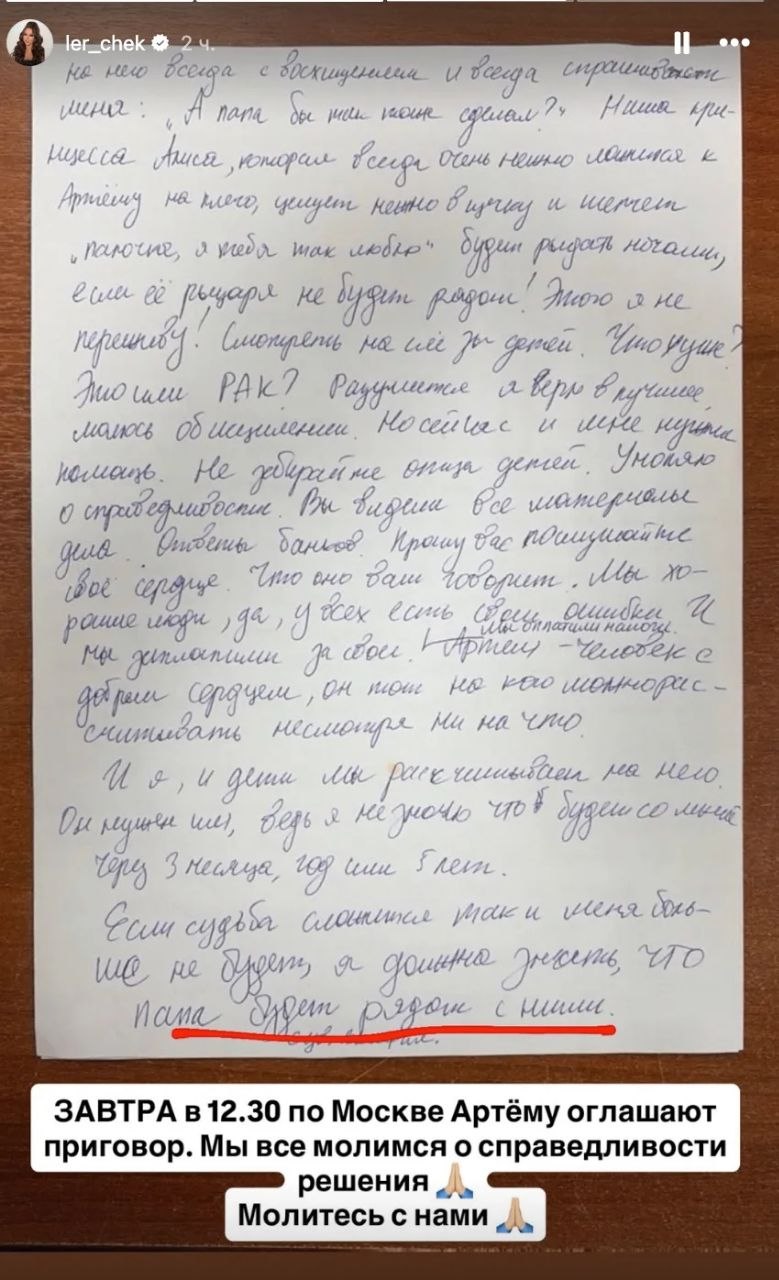 ler_chek 2 ч.
на него всегда с восхищением и всегда спрашивает
меня: „А папа бы так тоже сделал?" Наша прин-
цесса Алиса, которая всегда очень нежно ложится к
Артёму на плечо, целует нежно в щечку и шепчет
„папочка, я тебя так люблю" будет рыдать ночами,
если её рыцаря не будет рядом! Этого я не
переживу! Смотреть на слёзы детей. Что хуже?
Это или РАК? Разумеется я верю в лучшее,
молюсь об исцелении. Но сейчас и мне нужна
помощь. Не забирайте отца детей. Умоляю
о справедливости. Вы видели все материалы
дела. Ответы банков. Прошу вас послушайте
своё сердце. Что оно вам говорит. Мы хо-
рошие люди, да, у всех есть свои ошибки. И
мы заплатили за свои. Мы оплатили налоги. Артём – человек с
добрым сердцем, он тот на кого можно рас-
считывать несмотря ни на что.
И я, и дети мы рассчитываем на него.
Он нужен им, ведь я не знаю что будет со мной
через 3 месяца, год или 5 лет.
Если судьба сложится так и меня боль-
ше не будет, я должна знать, что
папа будет рядом с ними.
ЗАВТРА в 12.30 по Москве Артёму оглашают
приговор. Мы все молимся о справедливости
решения 🙏🏼
Молитесь с нами 🙏🏼